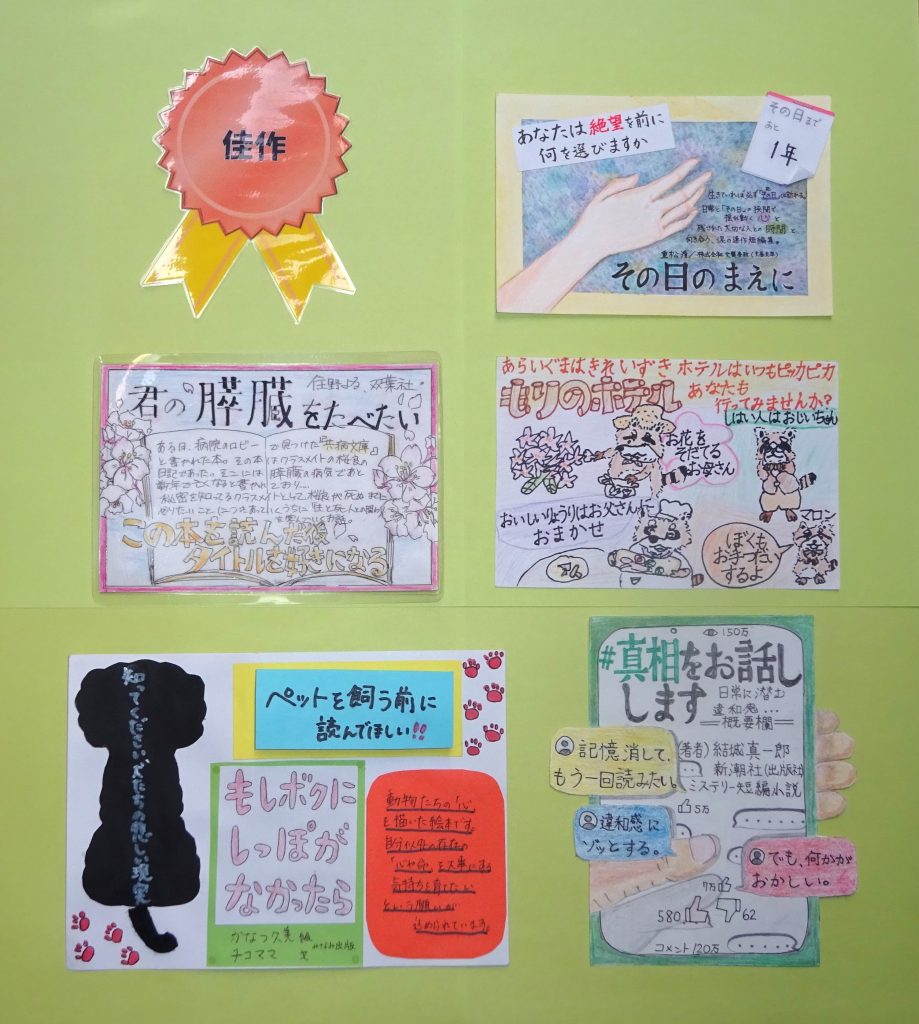 佳作
あなたは絶望を前に
何を選びますか
その日まで
あと
1年
生きていれば必ず「その日」は訪れる。
日常と「その日」の狭間で
揺れ動く 心 と
残された大切な人との 時間 と
向き合う、涙の連作短編集。
重松清/株式会社文藝春秋(文春文庫)
その日のまえに
君の膵臓をたべたい
住野よる 双葉社
ある日、病院のロビーで見つけた『共病文庫』
と書かれた本。その本はクラスメイトの桜良の
日記であった。そこには、膵臓の病気であと
数年で亡くなると書かれており…
この本を読んだ後
タイトルを好きになる
あらいぐまはきれいずき ホテルはいつもピッカピカ
もりのホテル
あなたも
行ってみませんか?
しはい人はおじいちゃん
お花を
そだてる
お母さん
おいしいりょうりはお父さんに
おまかせ
マロン
ぼくも
お手つだい
するよ
知ってください犬たちの悲しい現実
ペットを飼う前に
読んでほしい!!
もしボクに
しっぽが
なかったら
かなつ久美 絵
チコママ 文
みなみ出版
動物たちの「心」
を描いた絵本です。
自分以外の存在の
「心や命」を大事にする
気持ちを育てたい
という願いが
込められています。
150万
#真相をお話し
します
日常に潜む
違和感…
概要欄
記憶消して、
もう一回読みたい。
(著者)結城真一郎
新潮社(出版社)
ミステリー短編小説
5万
違和感に
ゾッとする。
でも、何かが
おかしい。
7万
580
62
コメント120万